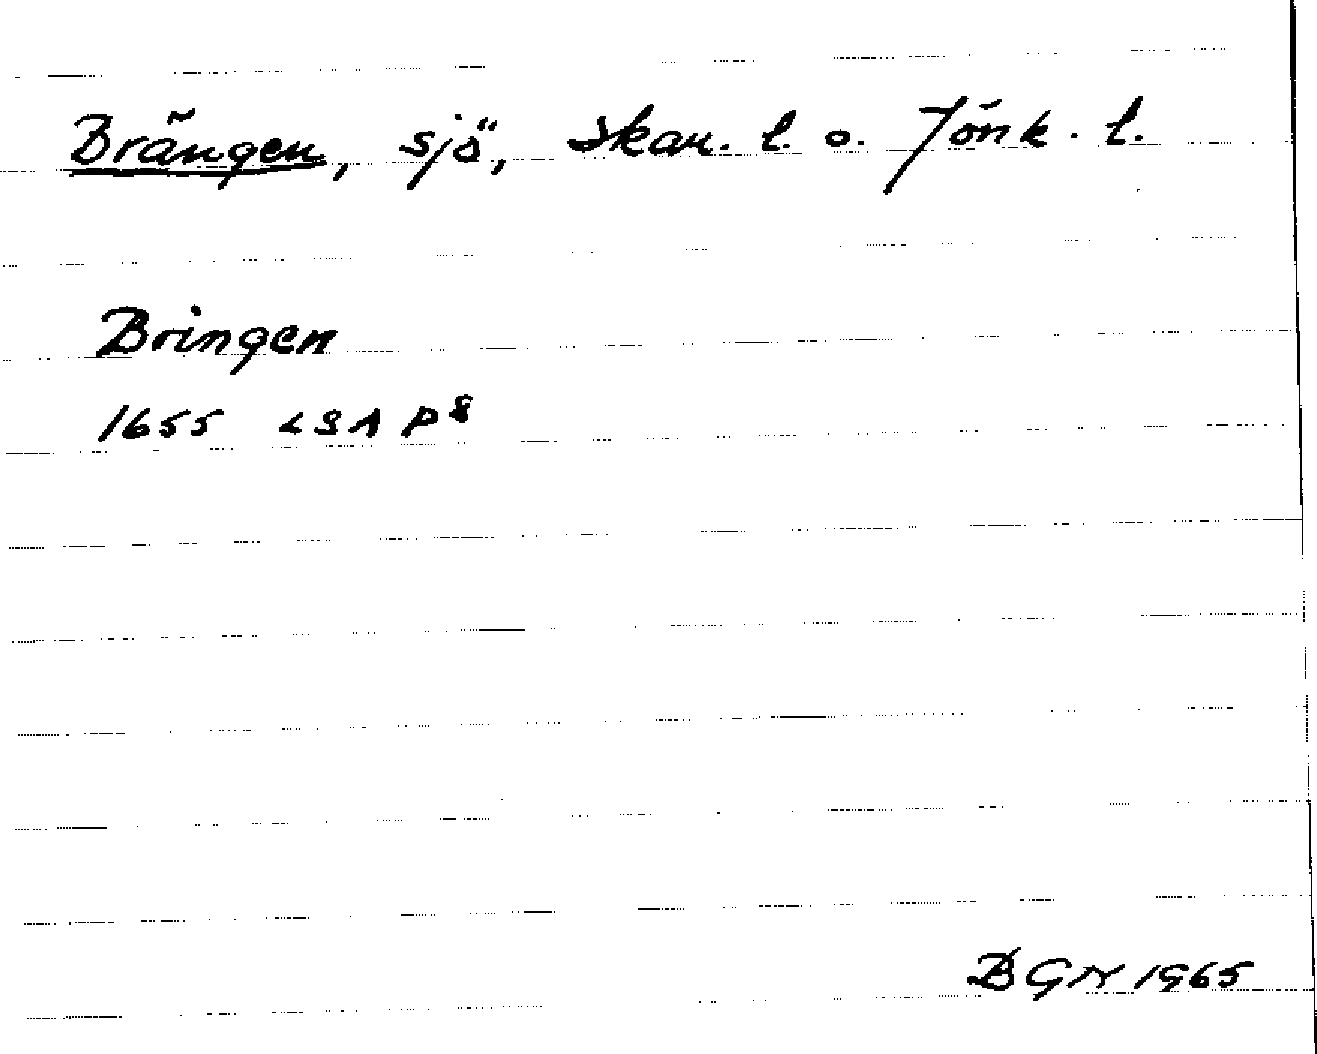 Brängen, sjö, Skar. l. o. Jönk. l.
Bringen
1655 LSA P8
BGN 1965